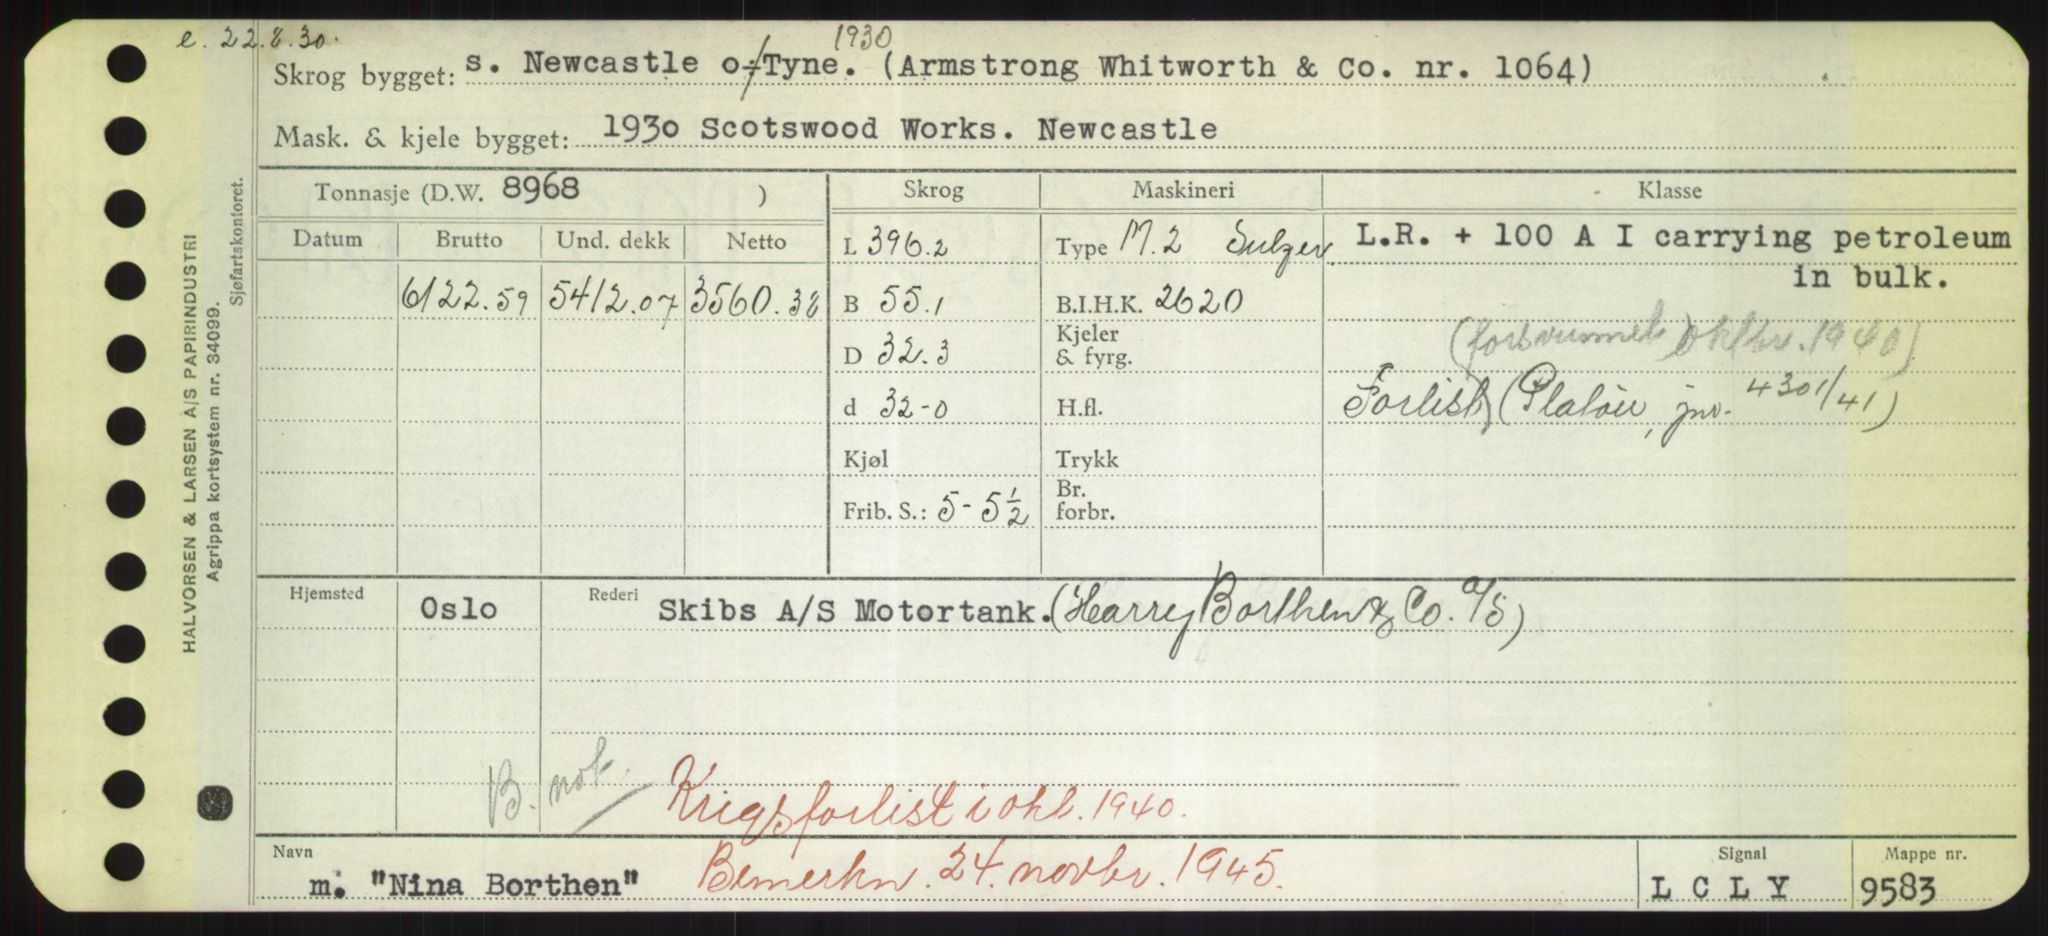 e. 22.8.30.
1930
Skrog bygget: s. Newcastle o/Tyne. (Armstrong Whitworth & Co. nr. 1064)
Mask. & kjele bygget: 1930 Scotswood Works. Newcastle
Tonnasje (D.W. 8968 )
Skrog
Maskineri
Klasse
Datum
Brutto
Und. dekk
Netto
6122.59
5412.07
3560.38
L 396.2
B 55.1
D 32.3
d 32-0
Kjøl
Frib. S.: 5-5½
Type M.2 Sulzer
B.I.H.K. 2620
Kjeler
& fyrg.
H.fl.
Trykk
Br.
forbr.
L.R. + 100 A I carrying petroleum
in bulk.
(forsvunnet oktbr. 1940)
Forlist (Platöu, jnr. 4301/41)
Hjemsted
Oslo
Rederi
Skibs A/S Motortank. (Harry Borthen & Co. A/S)
B. not.
Krigsforlist i okt. 1940.
Bemerkn. 24. novbr. 1945.
Navn
m. "Nina Borthen"
Signal
L C L Y
Mappe nr.
9583
HALVORSEN & LARSEN A/S PAPIRINDUSTRI
Agrippa kortsystem nr. 34099.
Sjøfartskontoret.